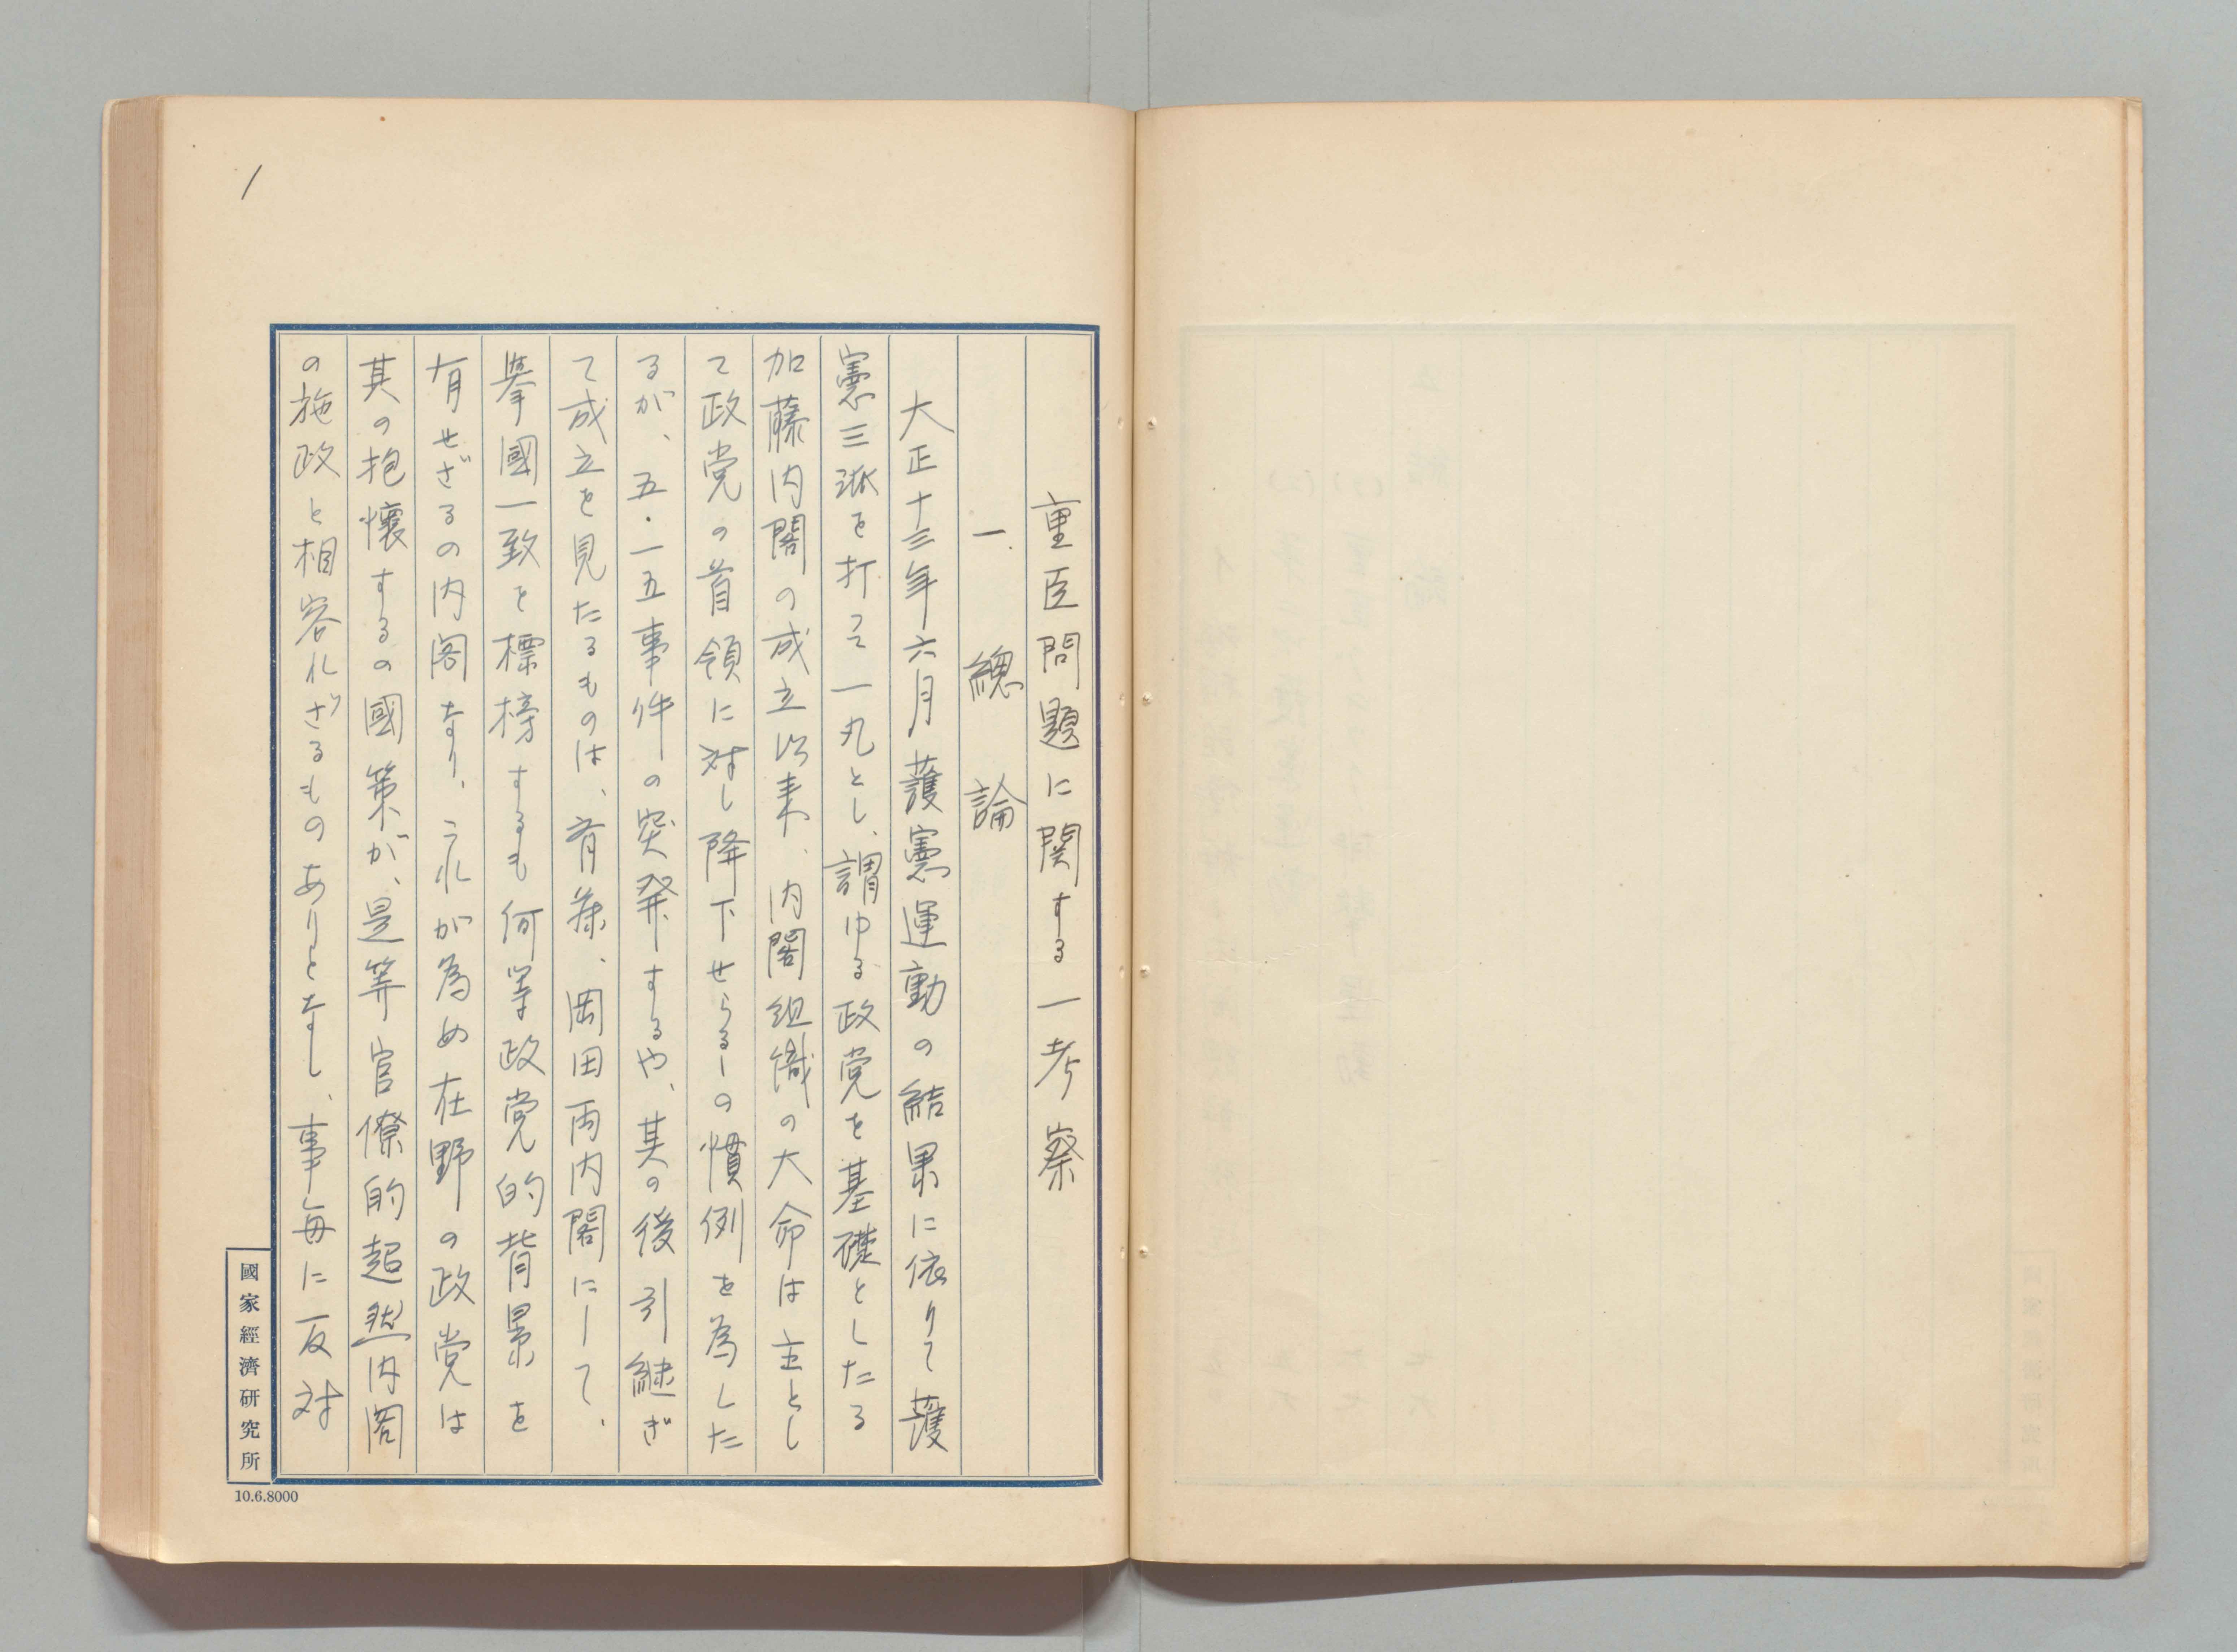 重臣問題に関する一考察
一、總論
大正十三年六月護憲運動の結果に依りて護
憲三派を打って一丸とし、謂ゆる政党を基礎としたる
加藤内閣の成立以来、内閣組織の大命は主とし
て政党の首領に対し降下せらるゝの慣例を為した
るが、五・一五事件の突発するや、其の後引継ぎ
て成立を見たるものは、斉藤、岡田両内閣にして、
挙國一致を標榜するも何等政党的背景を
有せざるの内閣なり、これが為め在野の政党は
其の抱懐するの國策が、是等官僚的超然内閣
の施政と相容れざるものありとなし、事毎に反対
1
國家經濟研究所
10.6.8000